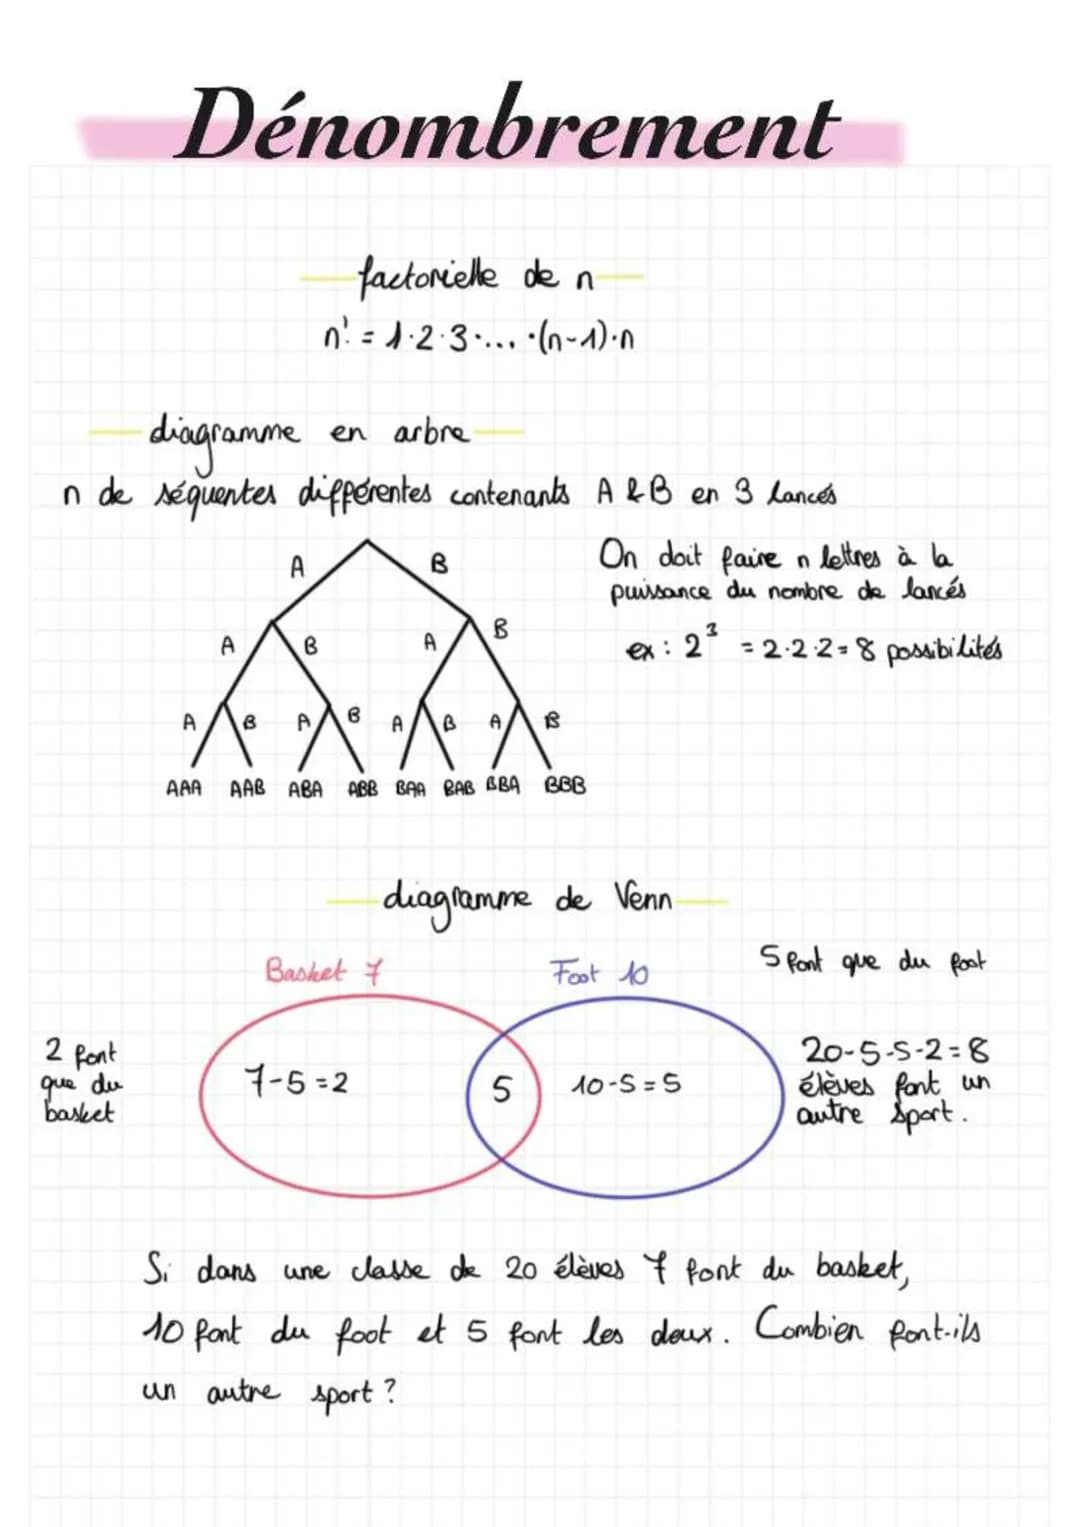 Dénombrement
factorielle de n
n! = 1·2·3·... ·(n-1)·n
diagramme en arbre
n de séquentes différentes contenants A & B en 3 lancés
On doit faire n lettres à la
puissance du nombre de lancés
ex : 2³ = 2·2·2 = 8 possibilités
A B
A B A B
A B A B A B A B
AAA AAB ABA ABB BAA BAB BBA BBB
diagramme de Venn
Basket 7
Foot 10
5 font que du foot
2 font
que du
basket
7-5=2
5
10-5=5
20-5-5-2=8
élèves font un
autre sport.
Si dans une classe de 20 élèves 7 font du basket,
10 font du foot et 5 font les deux. Combien font-ils
un autre sport ?